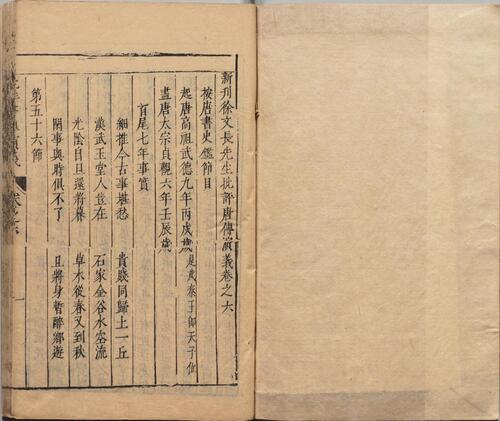 新刊徐文長先生批評唐傳演義卷之六
按唐書史鑑節目
起唐高祖武德九年丙戌歲是歲秦王即天子位
盡唐太宗貞觀六年壬辰歲
首尾七年事實
細推今古事堪愁 貴賤同歸土一丘
漢武玉堂人豈在 石家金谷水空流
光陰自旦還將暮 草木從春又到秋
閑事與時俱不了 且將身暫醉鄉遊
第五十六節